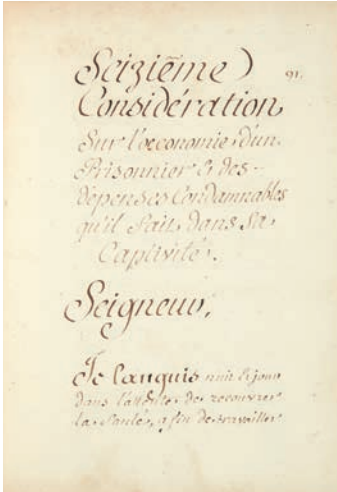 Seiziême 91.
Considération
Sur l'œconomie d'un
Prisonnier & des
dépenses Condamnables
qu'il fait dans sa
Captivité.
Seigneur,
Je languis nuit & jour
dans l'attente de recouvrer
la Santé, afin de travailler